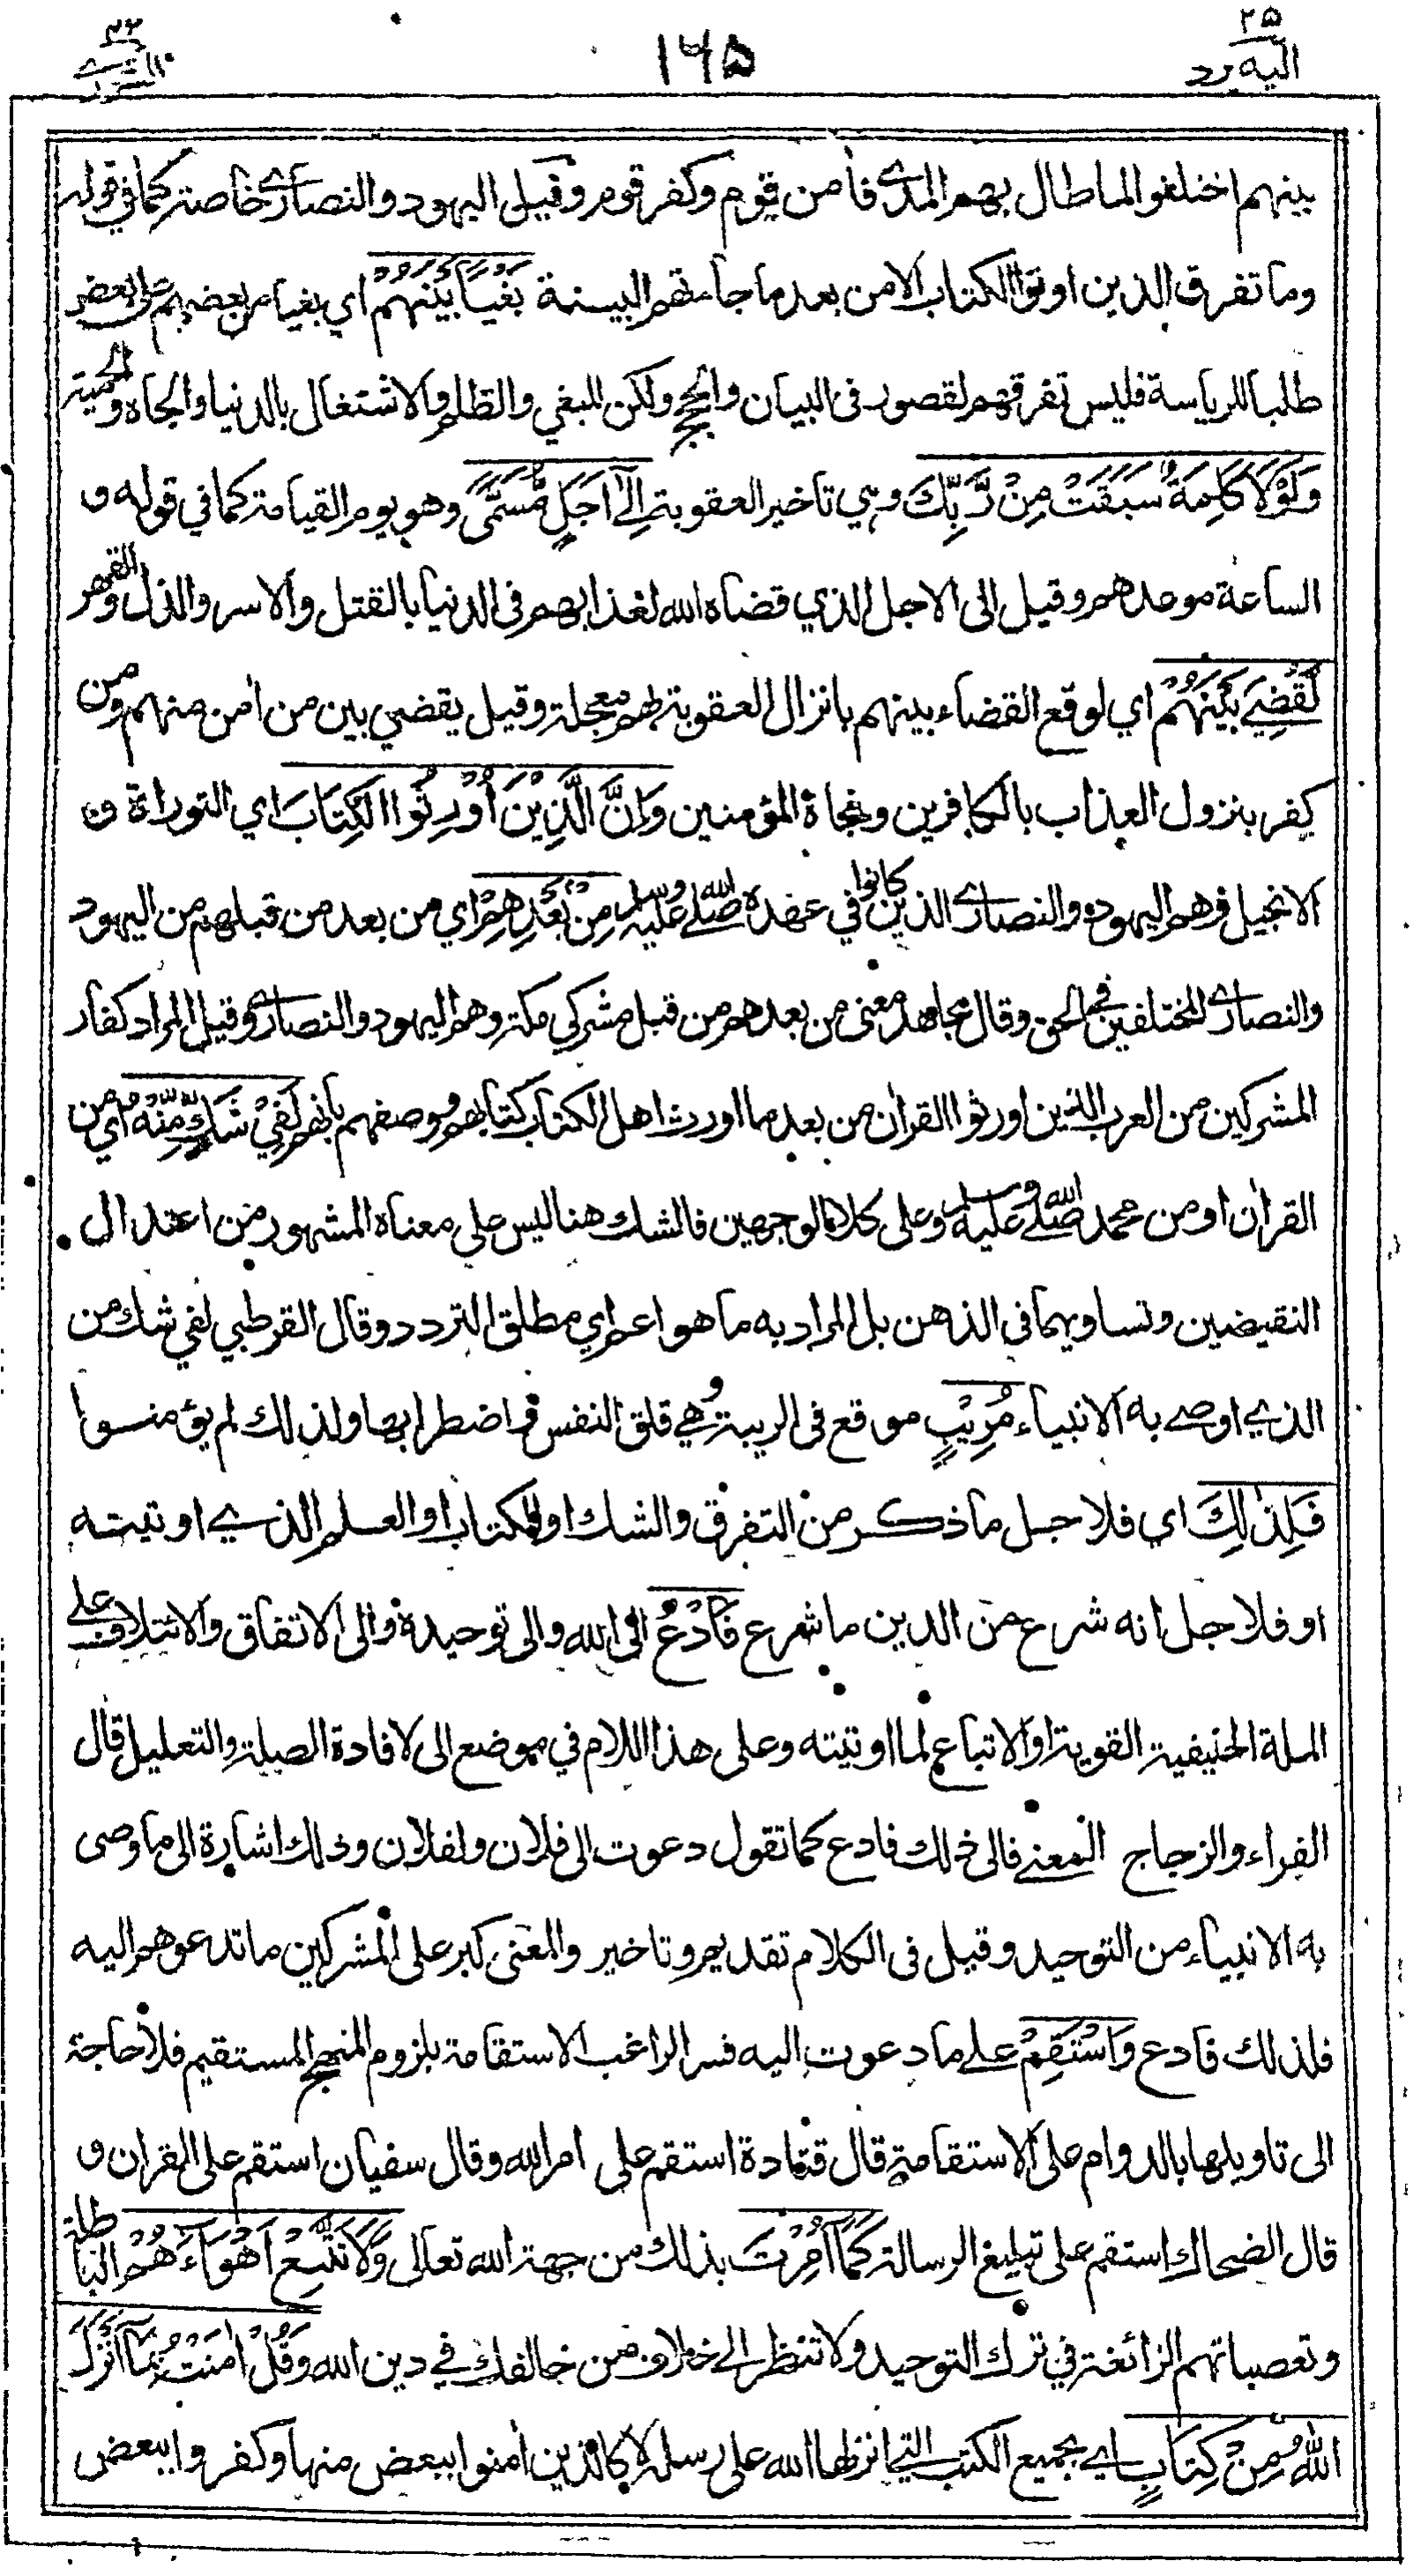 ٢٥
اليه يرد
١٦٥
٤٢
الشورى
بينهم اختلفوا لما طال بهم المدى فاٰمن قوم وكفر قوم وقيل اليهود والنصارى خاصة كما في قوله
وما تفرق الذين اوتوا الكتاب الا من بعد ما جاءتهم البينة بَغْيًا بَيْنَهُمْ اي بغيا من بعضهم على بعض
طلبا للرياسة فليس تفرقهم لقصور في البيان والحجج ولكن للبغي والظلم والاشتغال بالدنيا والجاه والحمية
وَلَوْلَا كَلِمَةٌ سَبَقَتْ مِنْ رَّبِّكَ وهي تاخير العقوبة اِلٰى اَجَلٍ مُّسَمًّى وهو يوم القيامة كما في قوله و
الساعة موعدهم وقيل الى الاجل الذي قضاه الله لعذابهم في الدنيا بالقتل والاسر والذل والقهر
لَقُضِيَ بَيْنَهُمْ اي لوقع القضاء بينهم بانزال العقوبة لهم معجلة وقيل يقضي بين من اٰمن منهم ومن
كفر بنزول العذاب بالكافرين ونجاة المؤمنين وَاِنَّ الَّذِيْنَ اُوْرِثُوا الْكِتَابَ اي التوراة و
الانجيل وهم اليهود والنصارى الذين كانوا في عهده صلى الله عليه وسلم مِنْ بَعْدِهِمْ اي من بعد من قبلهم من اليهود
والنصارى المختلفين في الحق وقال مجاهد معنى من بعدهم من قبل مشركي مكة وهم اليهود والنصارى وقيل المراد كفار
المشركين من العرب الذين اورثوا القراٰن من بعد ما اورث اهل الكتاب كتابهم ووصفهم بانهم لَفِيْ شَكٍّ مِّنْهُ اي من
القراٰن او من محمد صلى الله عليه وسلم وعلى كلا الوجهين فالشك هنا ليس على معناه المشهور من اعتدال
النقيضين وتساويهما في الذهن بل المراد به ما هو اعم اي مطلق التردد وقال القرطبي لفي شك من
الذي اوصى به الانبياء مُرِيْبٍ موقع في الريبة وهي قلق النفس واضطرابها ولذلك لم يؤمنوا
فَلِذٰلِكَ اي فلاجل ما ذكر من التفرق والشك او الكتاب او العلم الذي اوتيته
او فلاجل انه شرع من الدين ما شرع فَادْعُ الى الله والى توحيده والى الاتفاق والائتلاف على
الملة الحنيفية القوية او الاتباع لما اوتيته وعلى هذا اللام في موضع الى لافادة الصلة والتعليل قال
الفراء والزجاج المعنى فالى ذلك فادع كما تقول دعوت الى فلان ولفلان وذلك اشارة الى ما وصى
به الانبياء من التوحيد وقيل في الكلام تقديم وتاخير والمعنى كبر على المشركين ما تدعوهم اليه
فلذلك فادع وَاسْتَقِمْ على ما دعوت اليه فسر الراغب الاستقامة بلزوم المنهج المستقيم فلا حاجة
الى تاويلها بالدوام على الاستقامة قال قتادة استقم على امر الله وقال سفيان استقم على القراٰن و
قال الضحاك استقم على تبليغ الرسالة كَمَا اُمِرْتَ بذلك من جهة الله تعالى وَلَا تَتَّبِعْ اَهْوَاءَهُمْ الباطلة
وتعصباتهم الزائغة في ترك التوحيد ولا تنظر الى خلاف من خالفك في دين الله وَقُلْ اٰمَنْتُ بِمَا اَنْزَلَ
اللّٰهُ مِنْ كِتَابٍ اي بجميع الكتب التي انزلها الله على رسله لا كالذين اٰمنوا ببعض منها وكفروا ببعض